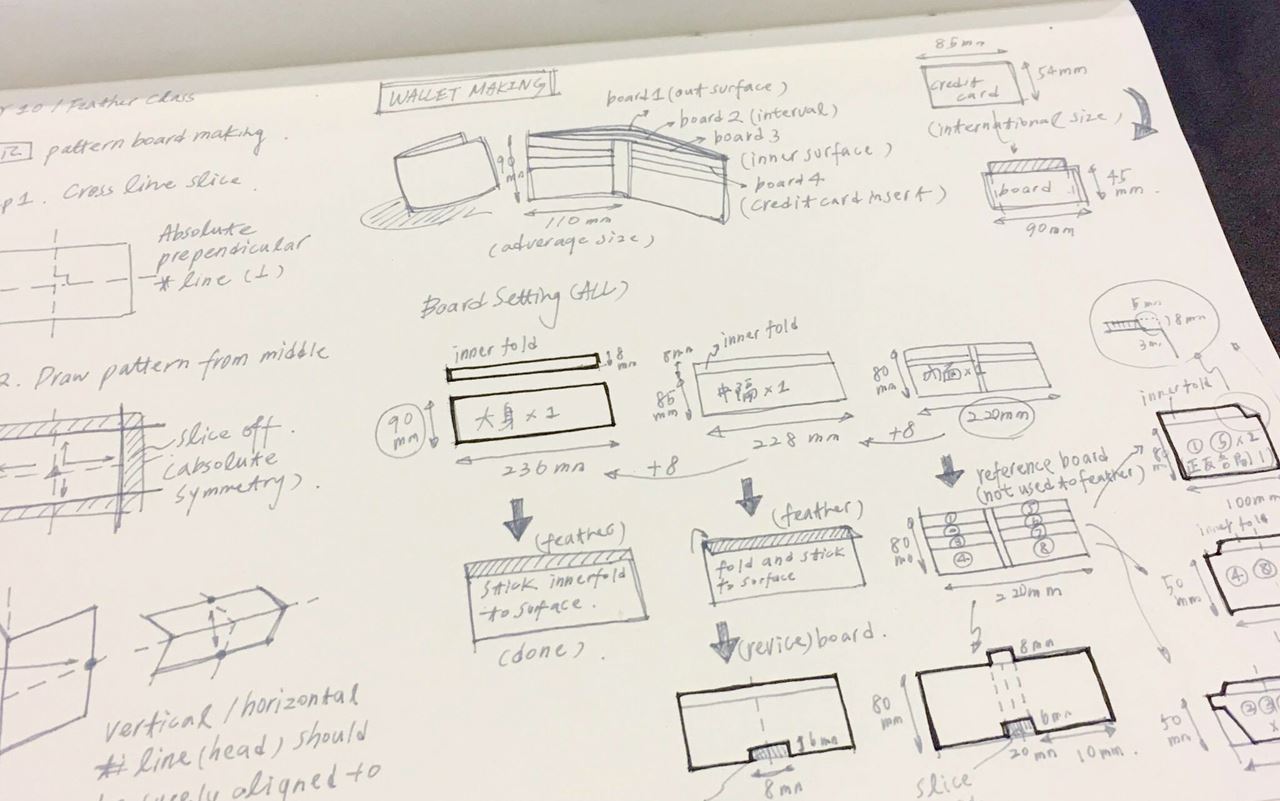 10 / Feather Class
pattern board making.
1. Cross line slice.
Absolute
prependicular
line (⊥)
2. Draw pattern from middle
slice off.
(absolute
symmetry).
vertical / horizontal
line (head) should
aligned to
WALLET MAKING
board 1 (out surface)
board 2 (interval)
board 3
(inner surface)
board 4
(credit card insert)
90
mn
110 mm
(adverage size)
85mm
credit
card
54mm
(international size)
board
45
mm.
90mm
Board Setting (ALL)
inner fold
8
mn
90
mm
大身 × 1
236 mn
+8
(feather)
stick innerfold
to surface.
(done).
inner fold
8mn
85
mm
中隔 × 1
228 mm
+8
(feather)
fold and stick
to surface
(revice) board.
6mn
8mn
80
mm
内面 ×
220mm
reference board
(not used to feather)
80
mm
① ⑤
④ ⑧
220mm
8mn
80
mm
6mn
20 mn
10mm.
slice
5 mn
8mn
3m
inner fold
① ⑤ × 2
100m
inner fold
④ ⑧
50
mm
② ③
50
mm